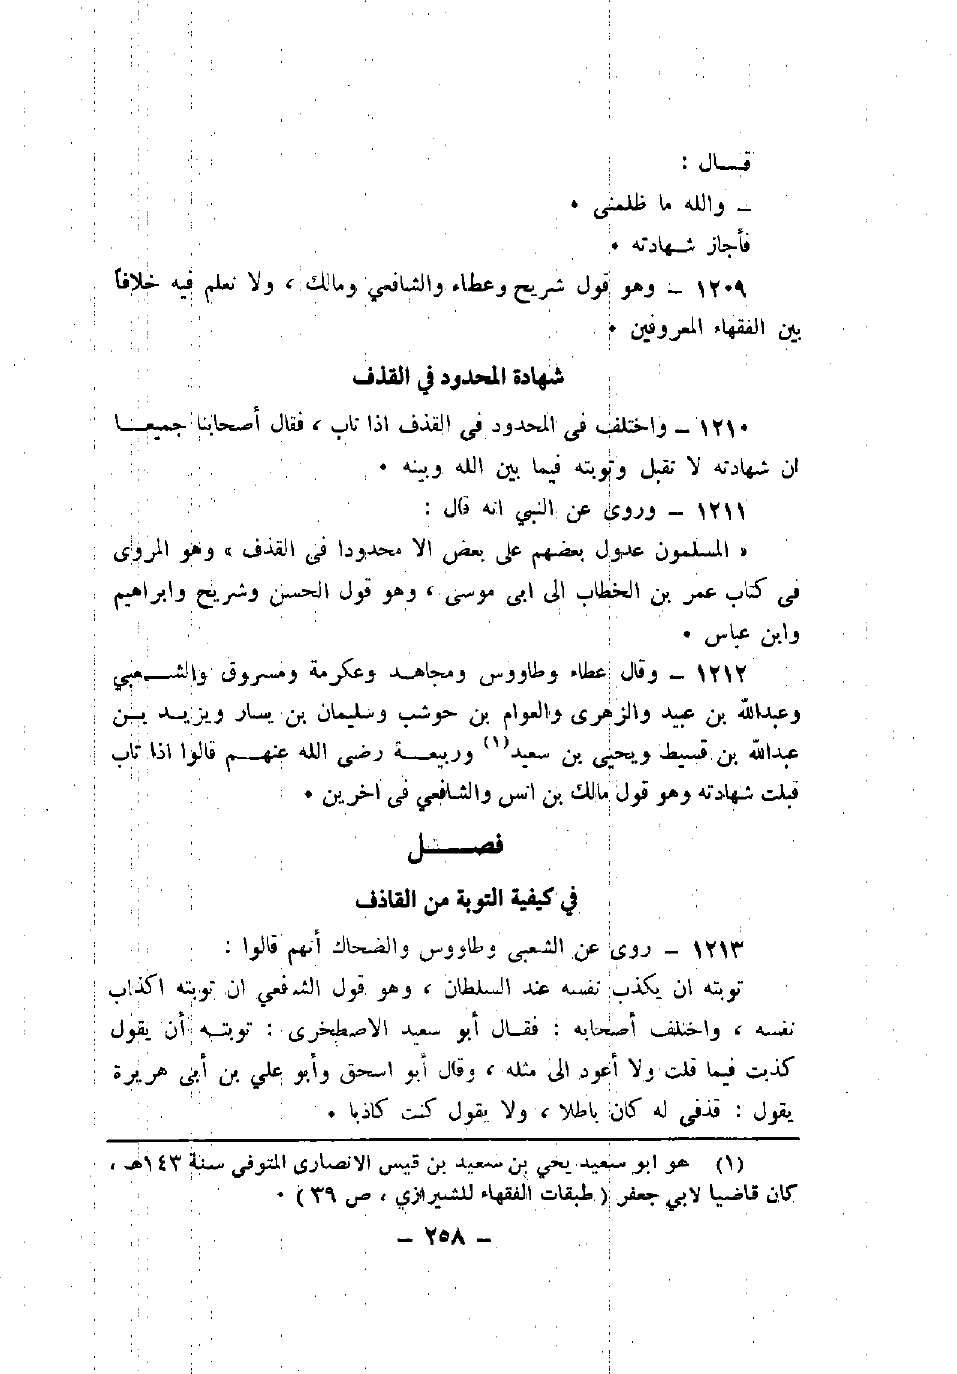 قــال :
ـ والله ما ظلمنى ٠
فأجاز شهادته ٠
١٢٠٩ ـ وهو قول شريح وعطاء والشافعي ومالك ، ولا نعلم فيه خلافاً
بين الفقهاء المعروفين ٠
شهادة المحدود في القذف
١٢١٠ ـ واختلف فى المحدود فى القذف اذا تاب ، فقال أصحابنا جميعــا
ان شهادته لا تقبل وتوبته فيما بين الله وبينه ٠
١٢١١ ـ وروى عن النبي انه قال :
« المسلمون عدول بعضهم على بعض الا محدودا فى القذف » وهو المروى
فى كتاب عمر بن الخطاب الى ابى موسى ، وهو قول الحسن وشريح وابراهيم
وابن عباس ٠
١٢١٢ ـ وقال عطاء وطاووس ومجاهـد وعكرمة ومسروق والشــعبي
وعبدالله بن عبيد والزهرى والعوام بن حوشب وسليمان بن يسار ويزيـد بـن
عبدالله بن قسيط ويحيى بن سعيد(١) وربيعــة رضى الله عنهــم قالوا اذا تاب
قبلت شهادته وهو قول مالك بن انس والشافعي فى اخرين ٠
فصــــل
في كيفية التوبة من القاذف
١٢١٣ ـ روى عن الشعبى وطاووس والضحاك أنهم قالوا :
توبته ان يكذب نفسه عند السلطان ، وهو قول الشافعي ان توبته اكذاب
نفسه ، واختلف أصحابه : فقـال أبو سعيد الاصطخرى : توبتـه أن يقول
كذبت فيما قلت ولا أعود الى مثله ، وقال أبو اسحق وأبو علي بن أبى هريرة
يقول : قذفى له كان باطلا ، ولا يقول كنت كاذبا ٠
(١) هو ابو سعيد يحي بن سعيد بن قيس الانصارى المتوفى سنة ١٤٣هـ ،
كان قاضيا لابي جعفر ( طبقات الفقهاء للشيرازي ، ص ٣٩ ) ٠
ـ ٢٥٨ ـ